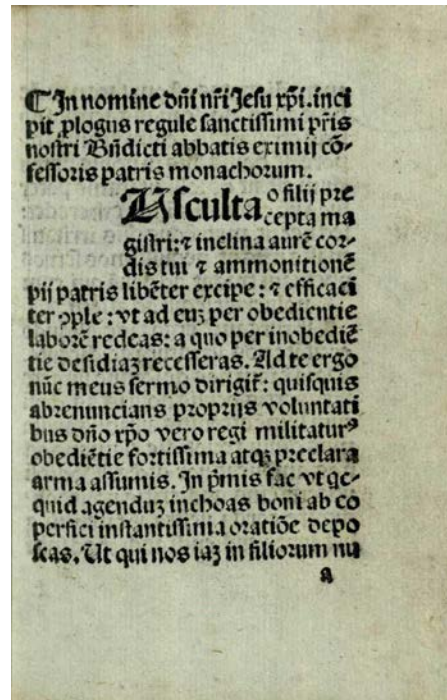 ¶ In nomine dñi nr̃i Jesu xp̃i. inci
pit ꝓlogus regule sanctissimi pr̃is
nostri Bñdicti abbatis eximij cõ-
fessoris patris monachorum.
Asculta o filij pre
cepta ma
gistri: ⁊ inclina aurẽ cor-
dis tui ⁊ ammonitionẽ
pij patris libẽter excipe: ⁊ efficaci
ter ꝯple: vt ad euꝫ per obedientie
laborẽ redeas: a quo per inobediẽ
tie desidiaꝫ recesseras. Ad te ergo
nũc meus sermo dirigit᷑: quisquis
abrenuncians proprijs voluntati
bus dño xp̃o vero regi militaturꝰ
obediẽtie fortissima atqꝫ preclara
arma assumis. In p̃mis fac vt qͥc-
quid agenduꝫ inchoas boni ab eo
perfici instantissima oratiõe depo
scas. Ut qui nos iaꝫ in filiorum nu
a